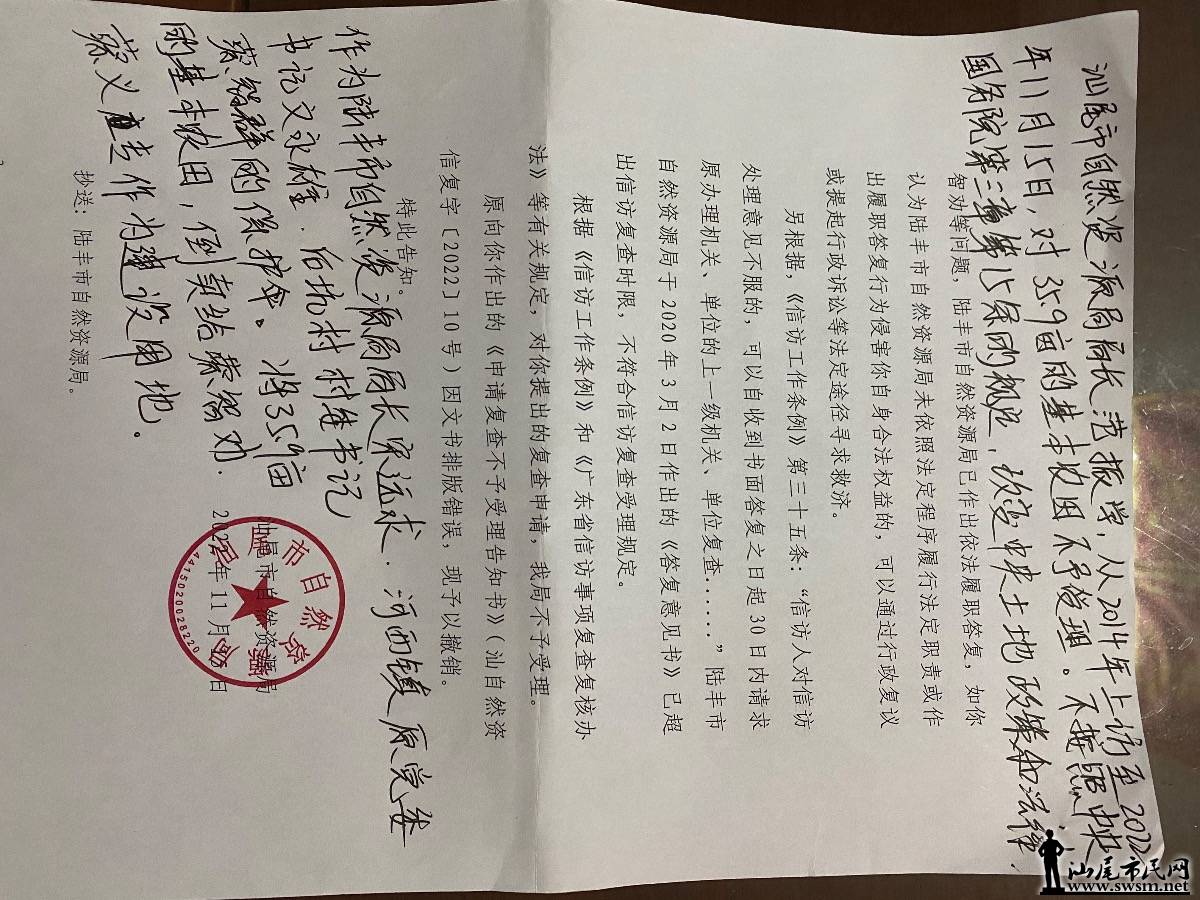 汕尾市自然资源局局长范报学,从2014年上访至2022
年11月15日,对35.9亩的基本农田不予受理。不按照中央
国务院第三章第15条的规定,改变中央土地政策和法律,
智劝等问题,陆丰市自然资源局已作出依法履职答复,如你
认为陆丰市自然资源局未依照法定程序履行法定职责或作
出履职答复行为侵害你自身合法权益的,可以通过行政复议
或提起行政诉讼等法定途径寻求救济。
另根据,《信访工作条例》第三十五条:“信访人对信访
处理意见不服的,可以自收到书面答复之日起30日内请求
原办理机关、单位的上一级机关、单位复查......”陆丰市
自然资源局于2020年3月2日作出的《答复意见书》已超
出信访复查时限,不符合信访复查受理规定。
根据《信访工作条例》和《广东省信访事项复查复核办
法》等有关规定,对你提出的复查申请,我局不予受理。
原向你作出的《申请复查不予受理告知书》(汕自然资
信复字〔2022〕10号)因文书排版错误,现予以撤销。
特此告知。
作为陆丰市自然资源局局长 运求.河西镇原党委
书记文永雄.后坑村村继书记
蔡智群的保护伞。将35.9亩
的基本农田,倒卖给蔡济劝.
蔡义 作为建设用地。
汕尾市自然资源局
2022年11月 日
汕尾市自然资源局
4415020028220
抄送:陆丰市自然资源局。
汕尾市民网
www.swsm.net